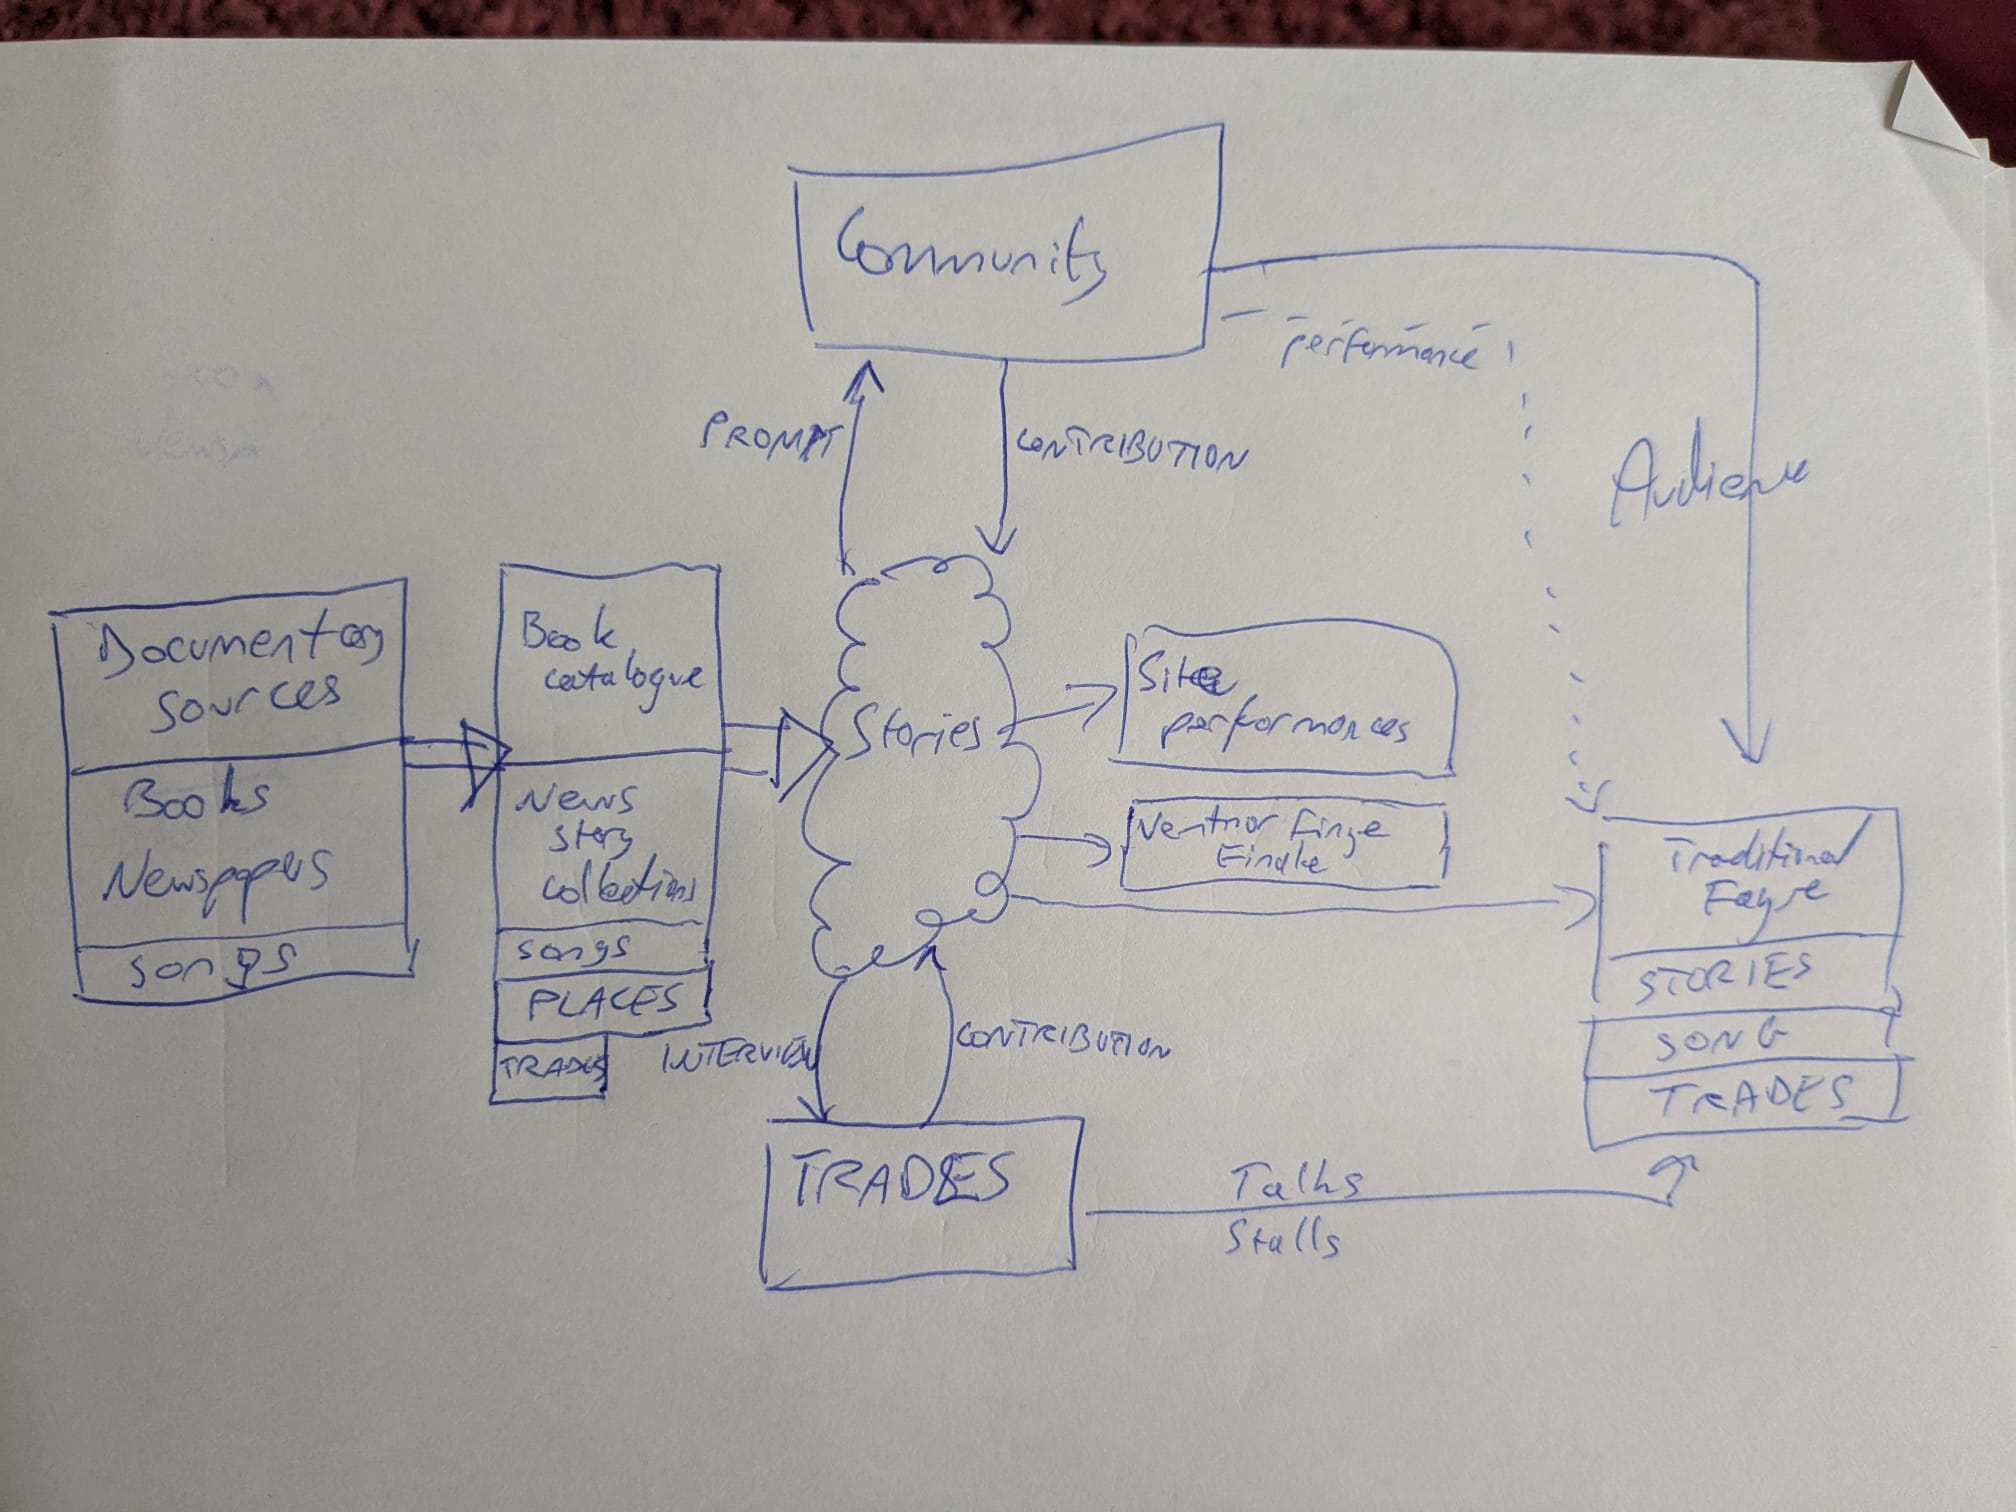 Community
performance
PROMPT
CONTRIBUTION
Audience
Documentary
sources
Books
Newspapers
songs
Book
catalogue
News
story
collections
songs
PLACES
TRADES
Stories
Site
performances
Ventnor Finge
Finale
Traditional
Fayre
STORIES
SONG
TRADES
INTERVIEW
CONTRIBUTION
TRADES
Talks
Stalls